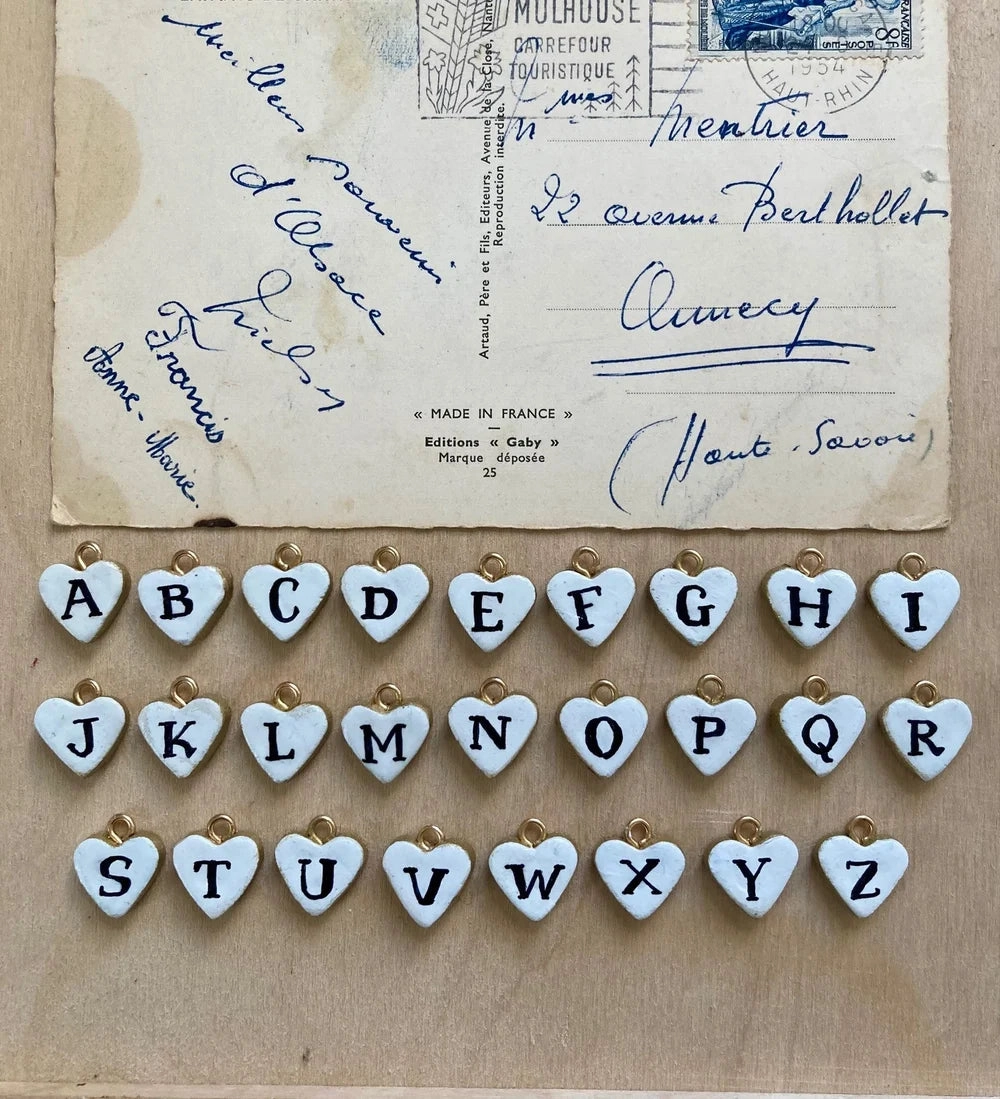 MULHOUSE
CARREFOUR
TOURISTIQUE
FRANÇAISE
8F
POSTES
1954
HAUT-RHIN
Meilleur
souvenir
d'Alsace
Francis
Anne-Marie.
Artaud, Père et Fils, Editeurs, Avenue de la Close, Nantes
Reproduction interdite.
Mentrier
22 avenue Berthollet
Annecy
(Haute-Savoie)
« MADE IN FRANCE »
Editions « Gaby »
Marque déposée
25
A B C D E F G H I
J K L M N O P Q R
S T U V W X Y Z